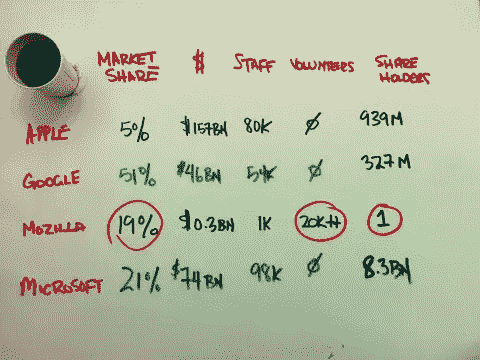 MARKET SHARE $ STAFF VOLUNTEERS SHARE HOLDERS
APPLE 5% $157BN 80K Ø 939M
GOOGLE 51% $46BN 54K Ø 327M
MOZILLA 19% $0.3BN 1K 20K+ 1
MICROSOFT 21% $74BN 98K Ø 8.3BN